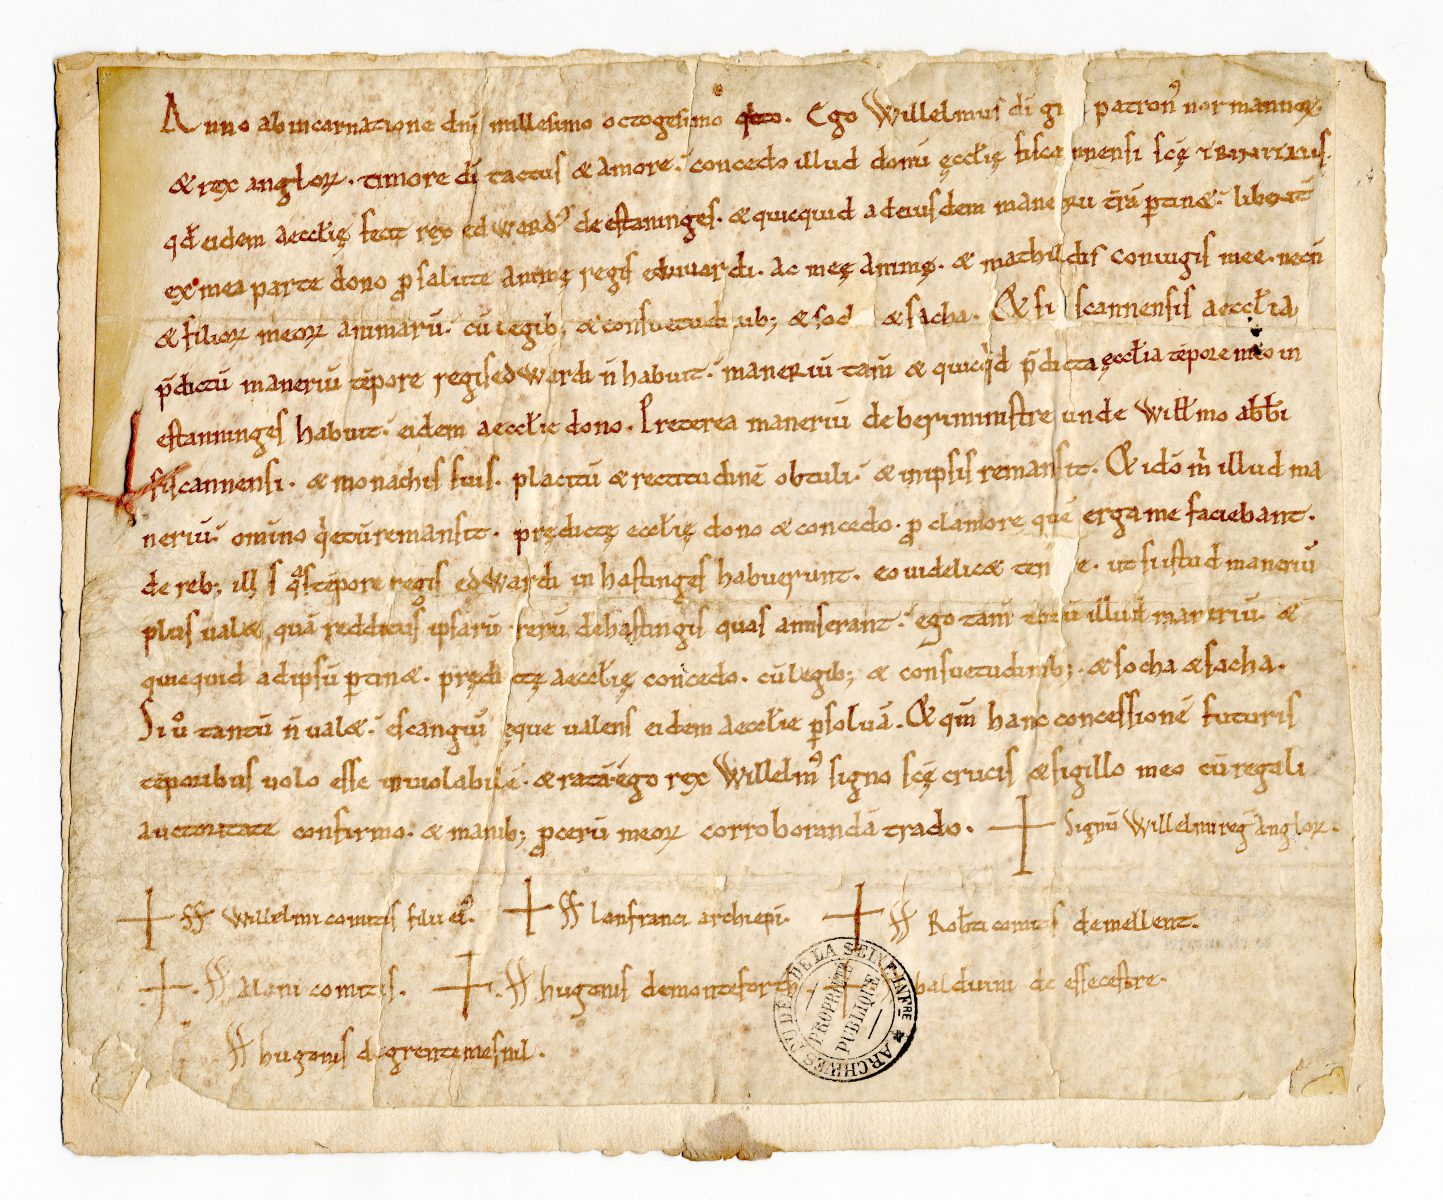 Anno ab incarnatione dnī millesimo octogesimo. Ego Willelmus dī patron' normannoꝝ.
& rex angloꝝ. timore dī tactus & amore. concedo illud donū ęccłię fiscannensi scę trinitatis.
qđ eidem aeccłię fecit rex edward' de estaninges. & quicquid ad eiusdem maneriū ꝑtin&.
ex mea parte dono ꝓ salute animę regis eduuardi. ac męę animę. & mathildis coniugis meę. necñ
& filioꝝ meoꝝ animarū. cū legib; & consuetudinib; & soc & sacha. & si fiscannensis aeccłia
p̄dictū maneriū tēpore regis edwardi ñ habuit. maneriū tam̄ & quicq'd p̄dicta ęccłia tēpore meo in
estanninges habuit. eidem aeccłie dono. Preterea maneriū de beriministre unde Wiłłmo abbī
fiscannensi. & monachis suis. placitū & rectitudinē obtuli. & in ipsis remansit. & idō m̄ illud ma
neriū. omīno q'etū remansit. prędictę ecclię dono & concedo. ꝓ clamore quē erga me faciebant.
de reb; illis q's tēpore regis edwardi in hastinges habuerunt. eo uidelic& tenore. ut si istud maneriū
plus ual& quā redditus ipsarū rerū de hastingis quas amiserant. ego tam̄ totū illud maneriū. &
quicquid ad ipsū ꝑtin&. prędictę aeccłię concedo. cū legib; & consuetudinib; & socha & sacha.
Si ů tantū ñ ual&. escangiū ęque ualens eidem aeccłie ꝑsoluā. & qm̄ hanc concessionē futuris
tēporibus uolo esse inuiolabilē. & ratā. ego rex Willelm' signo scę crucis & sigillo meo cū regali
auctoritate confirmo. & manib; ꝓcerū meoꝝ corroborandā trado. Signū Willelmi reḡ Angloꝝ.
Willelmi comitis filii ei'. lanfranci archiepī. Robti comitis de mellent.
Alani comitis. hugonis de monteforti baldwini de essecestre.
hugonis de grentemesnil.
ARCHIVES DU DÉPT DE LA SEINE-INFRE
PROPRIÉTÉ
PUBLIQUE